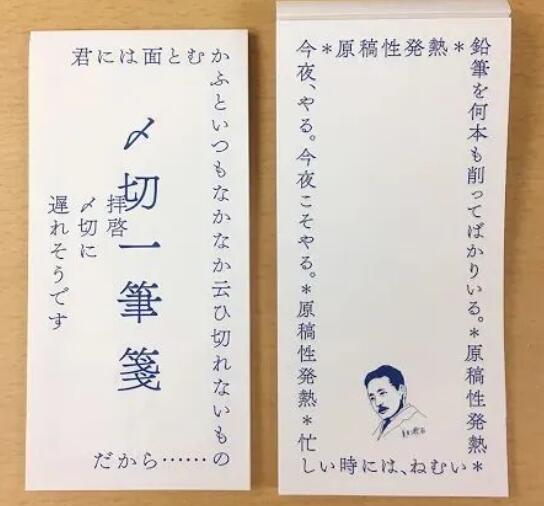 君には面とむ
かふといつもなかなか云ひ切れないもの
だから……
〆切一筆箋
拝啓
〆切に
遅れそうです
＊原稿性発熱＊
鉛筆を何本も削ってばかりいる。＊原稿性発熱＊
今夜、やる。今夜こそやる。＊原稿性発熱＊忙
しい時には、ねむい